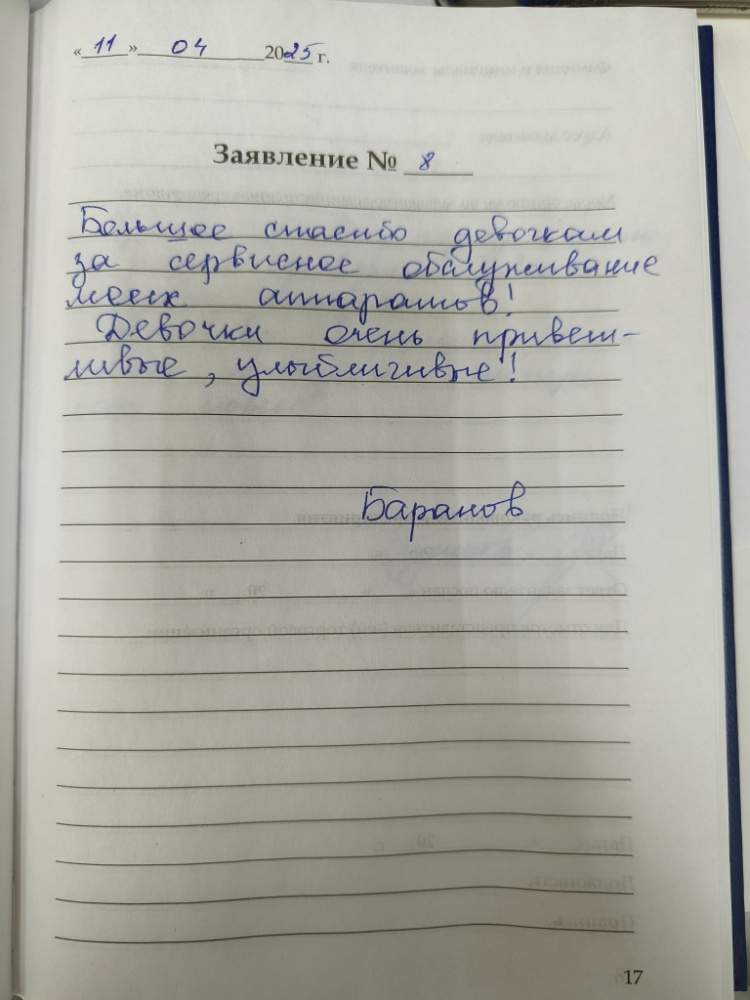 « 11 » 04 2025 г.
Заявление № 8
Большое спасибо девочкам
за сервисное обслуживание
моих аппаратов!
Девочки очень привет-
ливые, улыбчивые!
Баранов
17